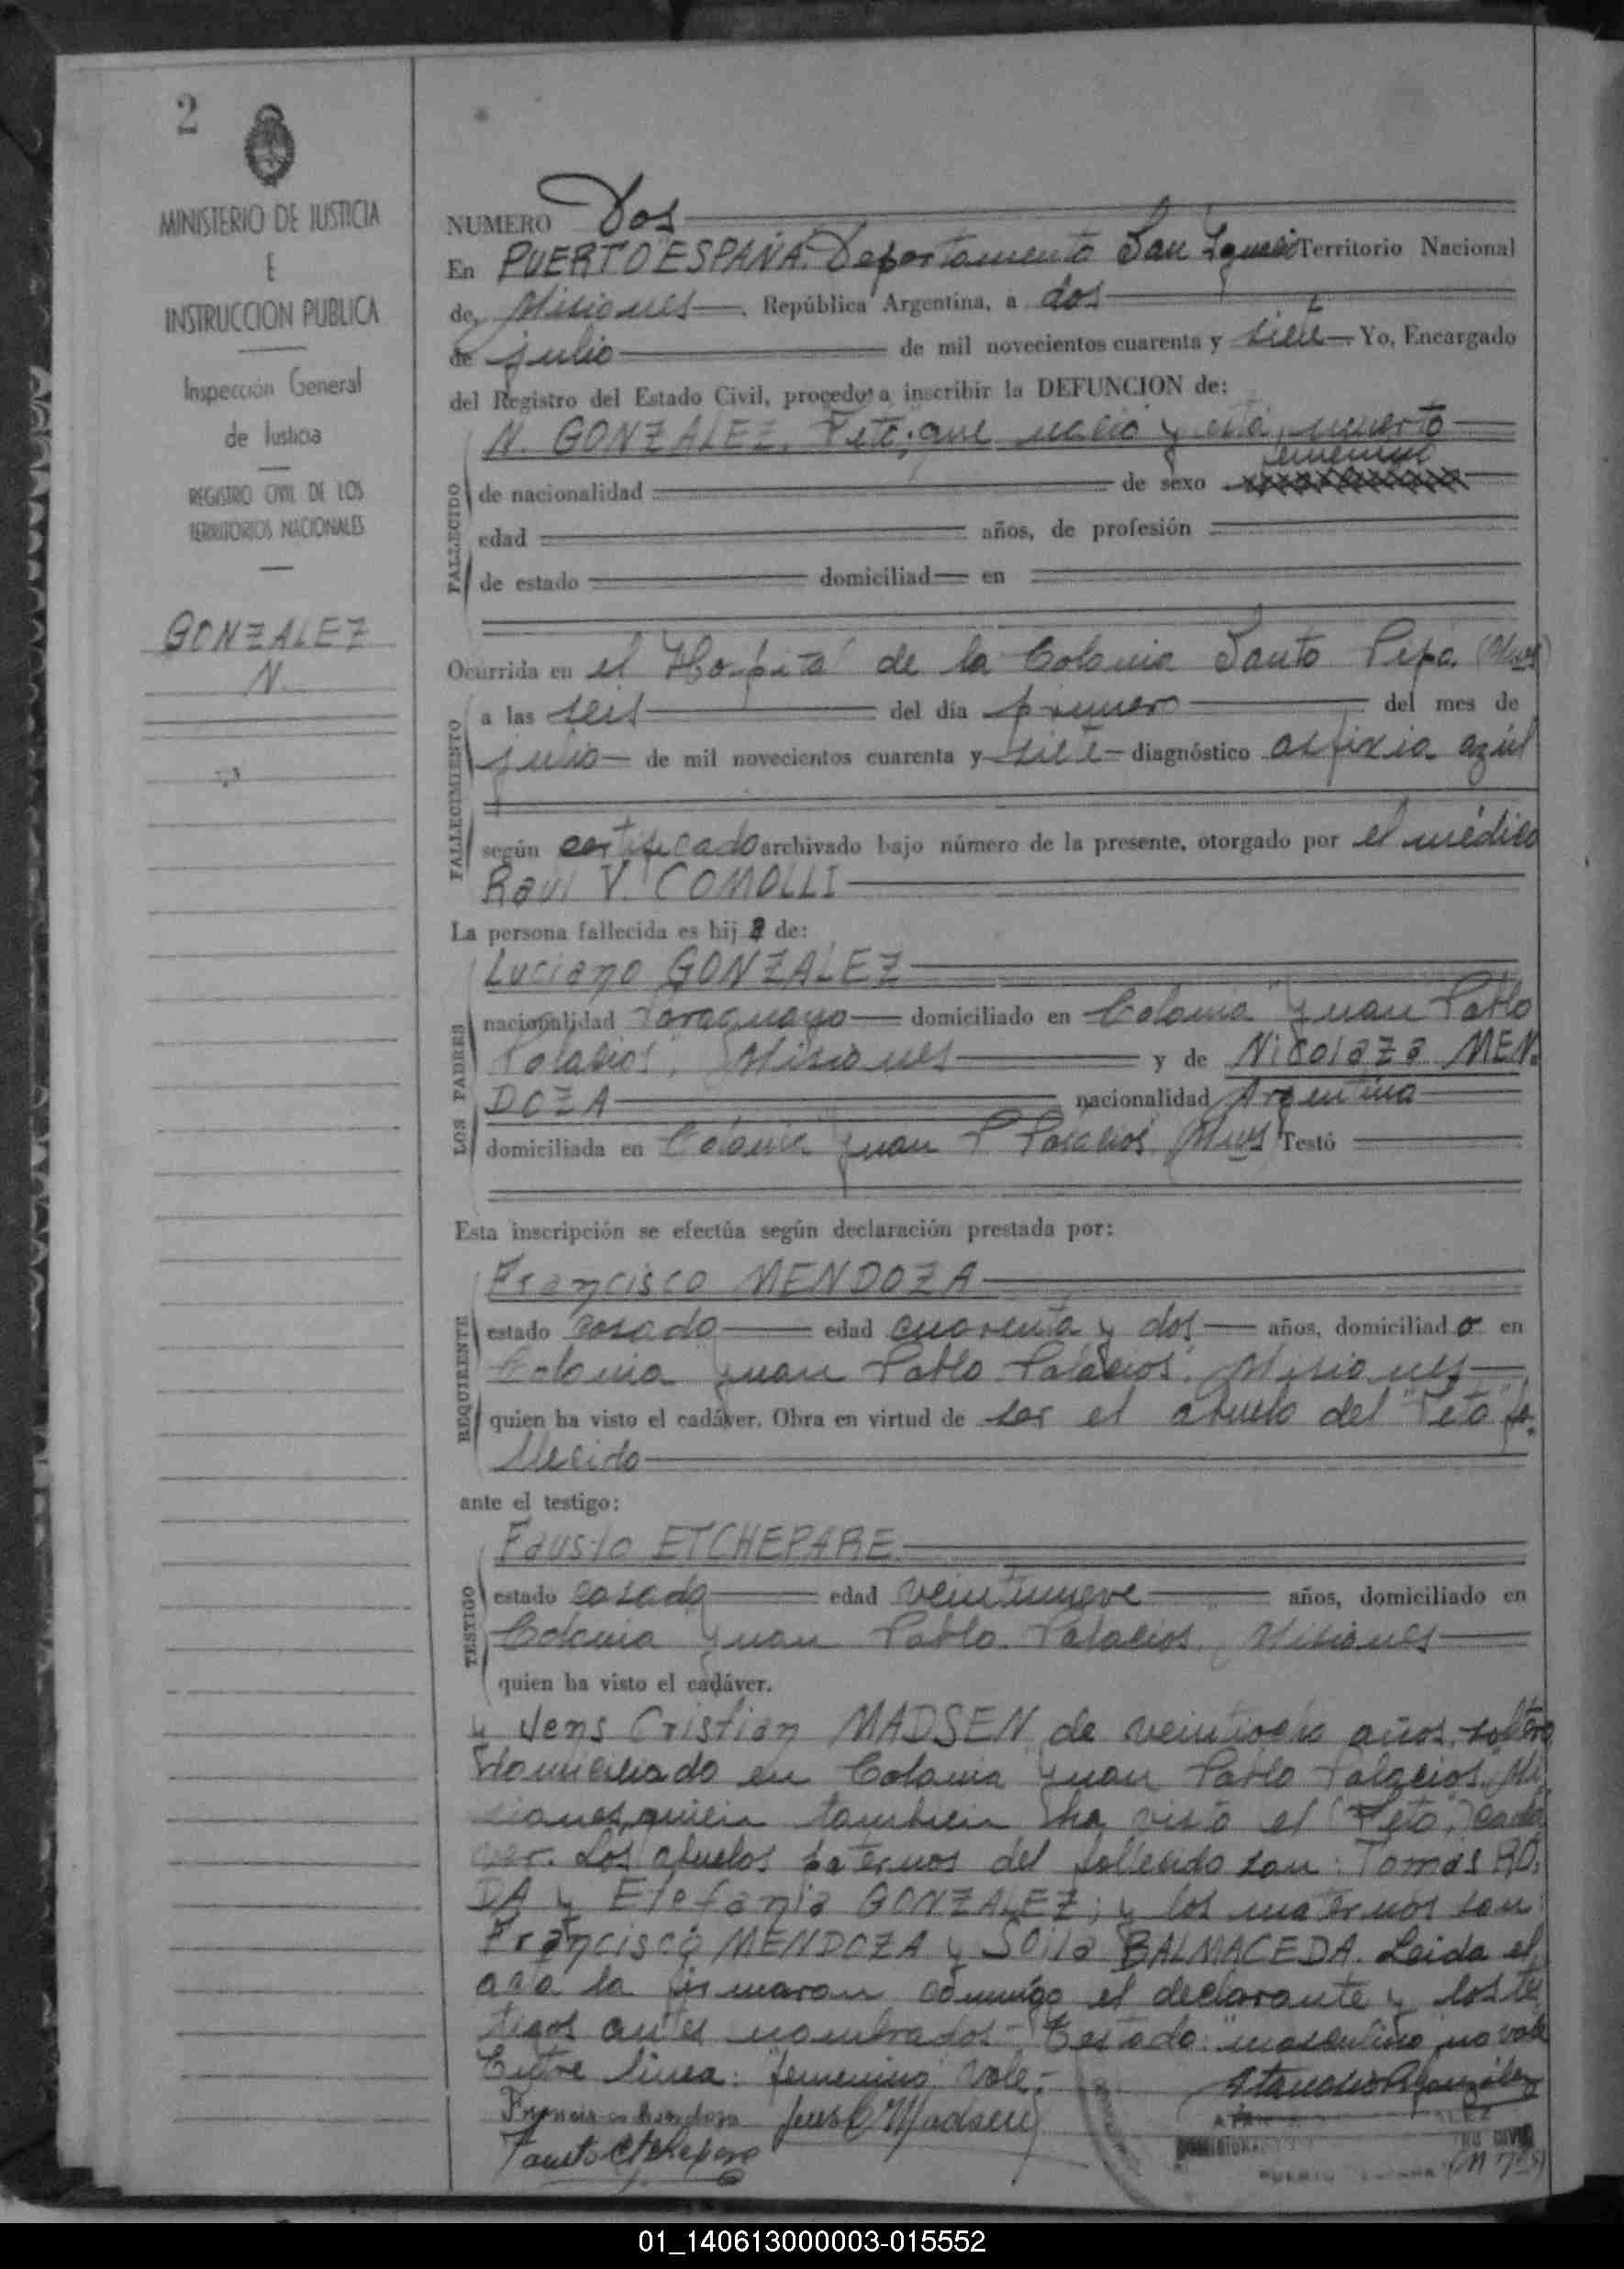 2
MINISTERIO DE JUSTICIA
E
INSTRUCCION PUBLICA
Inspección General
de Justicia
REGISTRO CIVIL DE LOS
TERRITORIOS NACIONALES
GONZALEZ
N.
NUMERO Dos
En PUERTO ESPAÑA. Departamento San Ignacio Territorio Nacional
de, Misiones, República Argentina, a dos
de julio de mil novecientos cuarenta y siete. Yo, Encargado
del Registro del Estado Civil, procedo a inscribir la DEFUNCION de:
N. GONZALEZ. Feto; que nació y está muerto
femenino
FALLECIDO
de nacionalidad de sexo
edad años, de profesión
de estado domiciliad en
Ocurrida en el Hospital de la Colonia Santo Pipó. (Mnes)
FALLECIMIENTO
a las seis del día primero del mes de
julio de mil novecientos cuarenta y siete diagnóstico asfixia azúl
según certificado archivado bajo número de la presente, otorgado por el médico
Raul V. COMOLLI
La persona fallecida es hij a de:
Luciano GONZALEZ
LOS PADRES
nacionalidad Paraguayo domiciliado en Colonia "Juan Pablo
Palacios", Misiones y de Nicolaza MEN.
DOZA nacionalidad Argentina
domiciliada en Colonia Juan P. Palacios (Mnes) Testó
Esta inscripción se efectúa según declaración prestada por:
Francisco MENDOZA
REQUIRENTE
estado casado edad cuarenta y dos años, domiciliad o en
Colonia "Juan Pablo Palacios". Misiones
quien ha visto el cadáver. Obra en virtud de ser el abuelo del "Feto" fa-
llecido
ante el testigo:
Fausto ETCHEPARE
TESTIGO
estado casado edad veintinueve años, domiciliado en
Colonia Juan Pablo Palacios, Misiones
quien ha visto el cadáver.
y Jens Cristian MADSEN de veintiocho años, soltero
domiciliado en Colonia "Juan Pablo Palacios", Mi
siones, quien tambien ha visto el (Feto,) cadá
ver. Los abuelos paternos del fallecido son: Tomás RO.
DA y Estefania GONZALEZ; y los maternos son
Francisco MENDOZA y Soila BALMACEDA. Leida el
acta la firmaron conmigo el declarante y los tes
tigos antes nombrados - Testado: "masculino" no vale
Entre linea: femenino vale.-
Francisco Mendoza Jens C Madsen
Fausto Etchepare
01_140613000003-015552